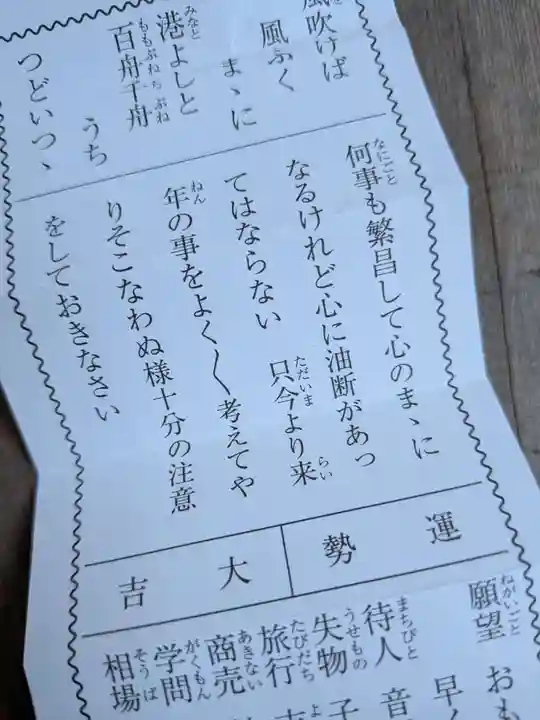 風吹けば
風ふく
まゝに
港よしと
百舟千舟
うち
つどいつゝ
何事も繁昌して心のまゝに
なるけれど心に油断があっ
てはならない 只今より来
年の事をよく〳〵考えてや
りそこなわぬ様十分の注意
をしておきなさい
運勢
大吉
願望 おも
早く
待人 音
失物 子
旅行
商売
学問
相場